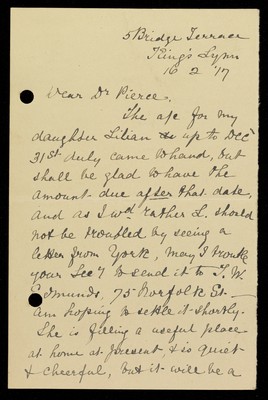 5 Bridge Terrace
King's Lynn
16 2 '17
Dear Dr Pierce,
The a/c for my
daughter Lilian up to Dec
31st duly came to hand, but
shall be glad to have the
amount due after that date,
and as I wd rather L. should
not be troubled by seeing a
letter from York, may I trouble
your Secy to send it to T. W.
Edmunds, 75 Norfolk St.
am hoping to settle it shortly.
She is filling a useful place
at home at present, & is quiet
& cheerful, but it will be a